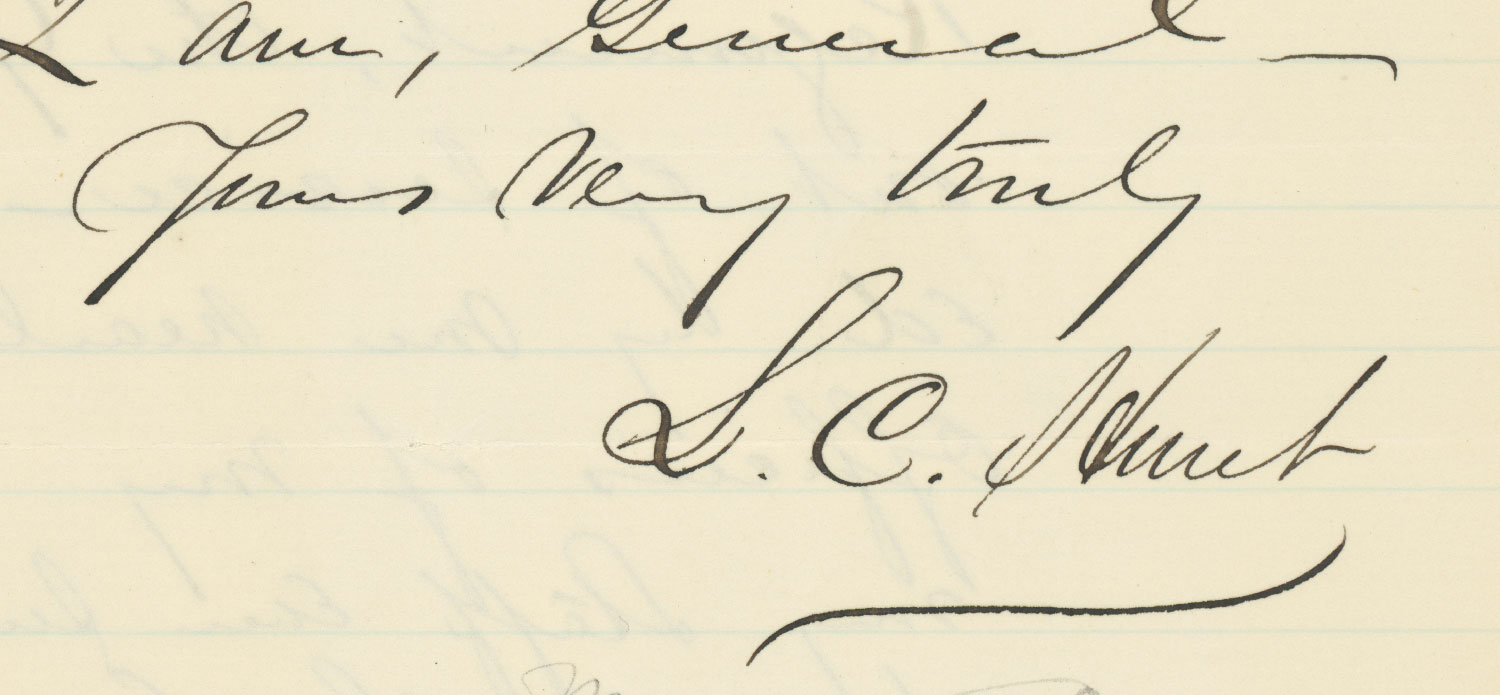 I am, General —
Yours very truly
S. C. Hurst